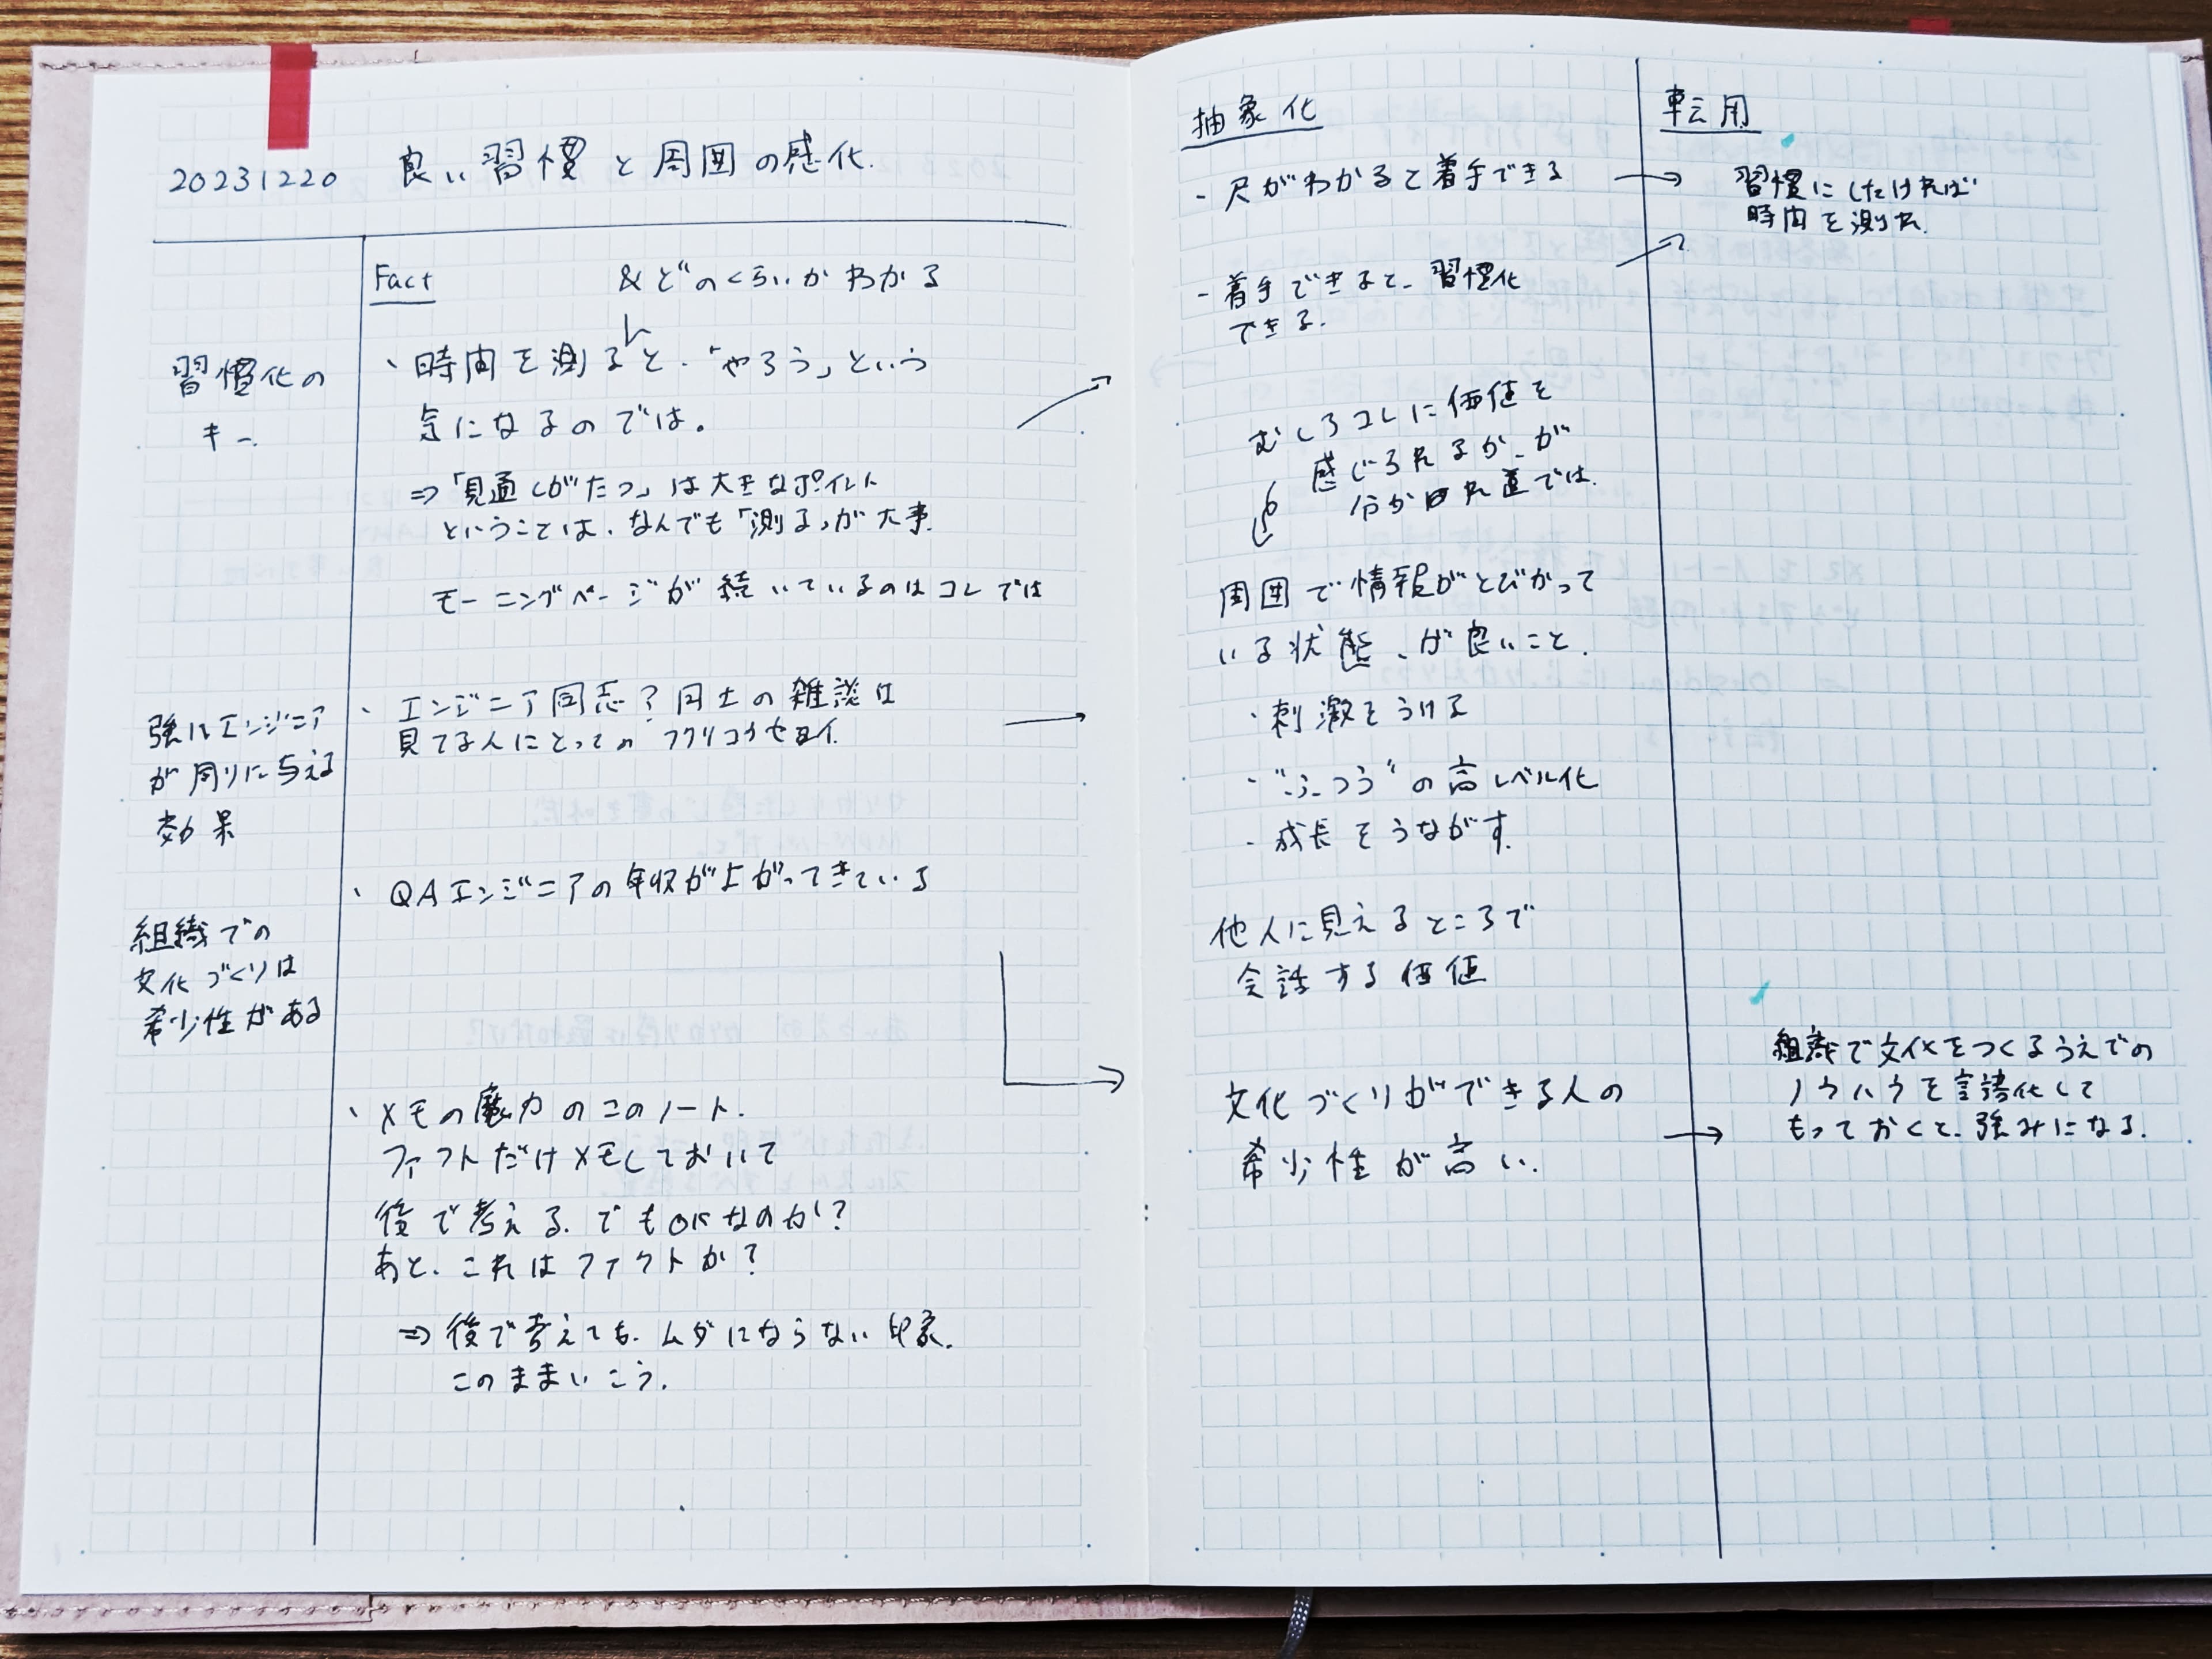 20231220 良い習慣と周囲の感化.
Fact
&どのくらいかわかる
習慣化の
キー.
・時間を測ると、「やろう」という
気になるのでは。
⇒「見通しがたつ」は大きなポイント
ということは、なんでも「測る」が大事.
モーニングページが続いているのはコレでは
強いエンジニア
が周りに与える
効果
・エンジニア同志?同士の雑談は
見てる人にとっての
組織での
文化づくりは
希少性がある
・QAエンジニアの年収が上がってきている
・メモの魔力のこのノート.
ファクトだけメモしておいて
後で考える.でもOKなのか?
あと、これはファクトか?
⇒後で考えても、ムダにならない印象.
このままいこう.
抽象化
- 尺がわかると着手できる
- 着手できると、習慣化
できる.
むしろコレに価値を
感じられるか、が
分かれ道では.
周囲で情報がとびかって
いる状態、が良いこと.
・刺激をうける
・"ふつう"の高レベル化
- 成長をうながす.
他人に見えるところで
会話する価値
文化づくりができる人の
希少性が高い.
転用
習慣にしたければ
時間を測れ.
組織で文化をつくるうえでの
ノウハウを言語化して
もっておくと、強みになる.